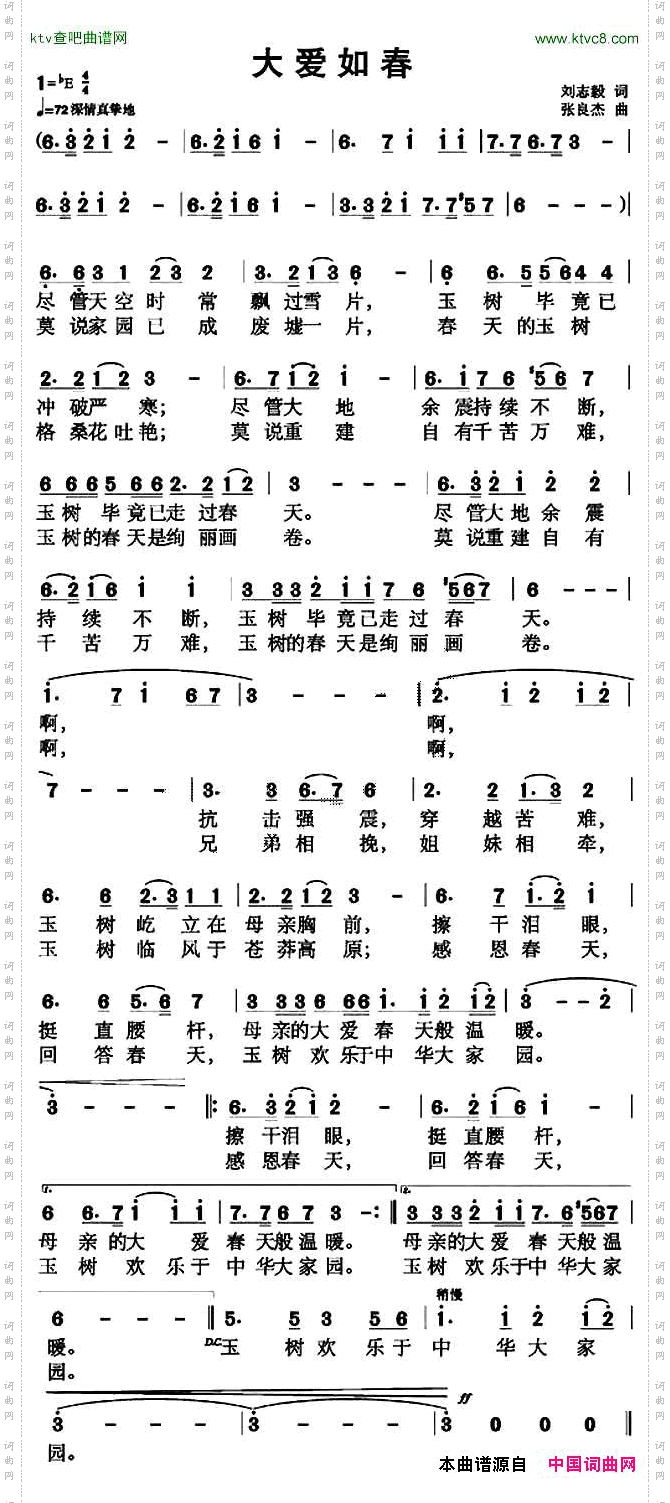 ktv查吧曲谱网 www.ktvc8.com
大爱如春
1=bE 4/4
♩=72 深情真挚地
刘志毅 词
张良杰 曲
(6.3 2 1 2 - | 6.2 1 6 1 - | 6. 7 1 1 1 | 7.7 6.7 3 - |
6.3 2 1 2 - | 6.2 1 6 1 - | 3.3 2 1 7.7 #5 7 | 6 - - -) |
6. 6 3 1 2 3 2 | 3. 2 1 3 6 - | 6 6. 5 5 6 4 4 |
尽管天空时常飘过雪片，玉树毕竟已
莫说家园已成废墟一片，春天的玉树
2. 2 1 2 3 - | 6. 7 1 2 1 - | 6. 1 7 6 #5 6 7 |
冲破严寒；尽管大地余震持续不断，
格桑花吐艳；莫说重建自有千苦万难，
6 6 6 5 6 6 2. 2 1 2 | 3 - - - | 6. 3 2 1 2 2 |
玉树毕竟已走过春天。尽管大地余震
玉树的春天是绚丽画卷。莫说重建自有
6. 2 1 6 1 1 | 3 3 3 2 1 1 7 6 #5 6 7 | 6 - - - |
持续不断，玉树毕竟已走过春天。
千苦万难，玉树的春天是绚丽画卷。
1. 7 1 6 7 | 3 - - - | 2. 1 2 1 2 |
啊，啊，
啊，啊，
7 - - - | 3. 3 6. 7 6 | 2. 2 1. 3 2 |
抗击强震，穿越苦难，
兄弟相挽，姐妹相牵，
6. 6 2. 3 1 1 | 2. 2 1 2 3 - | 6. 7 1. 2 1 |
玉树屹立在母亲胸前，擦干泪眼，
玉树临风于苍莽高原；感恩春天，
6. 6 5. 6 7 | 3 3 3 6 6 6 1. 1 2 1 2 | 3 - - 2 |
挺直腰杆，母亲的大爱春天般温暖。
回答春天，玉树欢乐于中华大家园。
3 - - - |: 6. 3 2 1 2 - | 6. 2 1 6 1 - |
擦干泪眼，挺直腰杆，
感恩春天，回答春天，
1. 2.
6 6. 7 1 1 1 | 7. 7 6 7 3 - :| 3 3 3 3 2 1 7. 6 #5 6 7 |
母亲的大爱春天般温暖。母亲的大爱春天般温
玉树欢乐于中华大家园。玉树欢乐于中华大家
稍慢
6 - - - || 5. 5 3 5 6 | 1. 1 2 2 |
暖。D.C. 玉树欢乐于中华大家
园。
ff
3 - - - | 3 - - - | 3 0 0 0 ||
园。
本曲谱源自 中国词曲网
词曲网